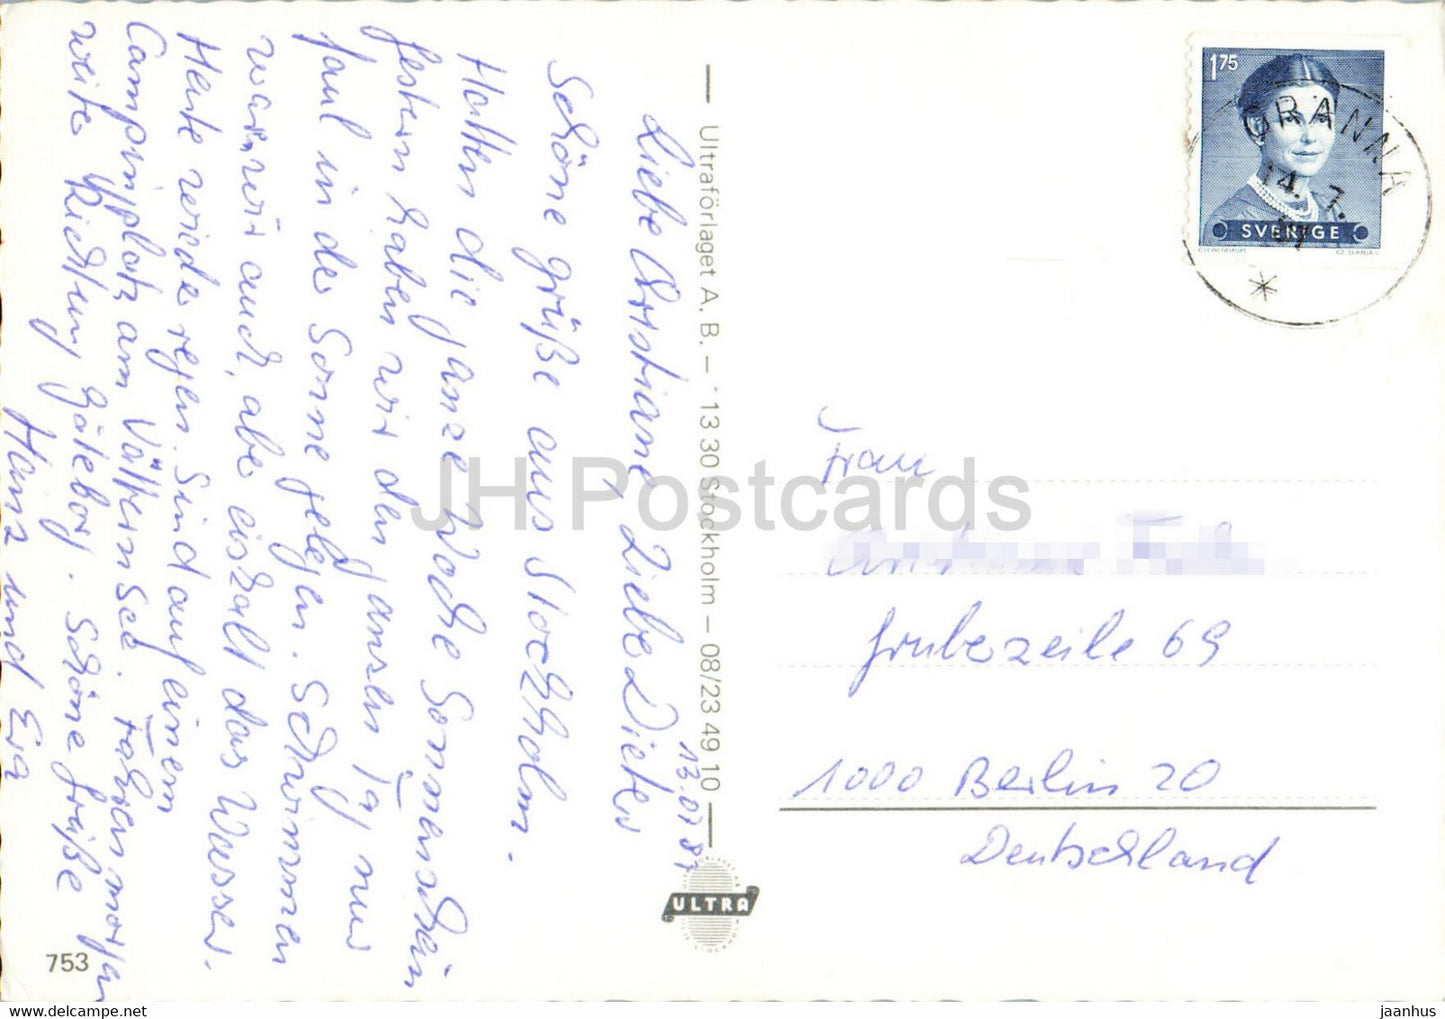 13.07.81
Liebe Christiane, Liebe Dieter
Schöne grüße aus Stockholm.
Hatten die ganze Woche Sonnenschein
festern haben wir den ganzen Tag nur
faul in der Sonne gelegen. Schwimmen
waren wir auch, aber eiskalt das Wasser.
Heute wieder regen. Sind auf einem
Campingplatz am Vätternsee. Fahren morgen
weiter Richtung Göteborg. Schöne Grüße
Heinz und Eva
Ultraförlaget A.B. – 13 30 Stockholm – 08/23 49 10
ULTRA
753
1 75
SVERIGE
CZ. SLANIA
GRÄNNA
14. 7.
81
Frau
Grubezeile 69
1000 Berlin 20
Deutschland
JH Postcards
jaanhus